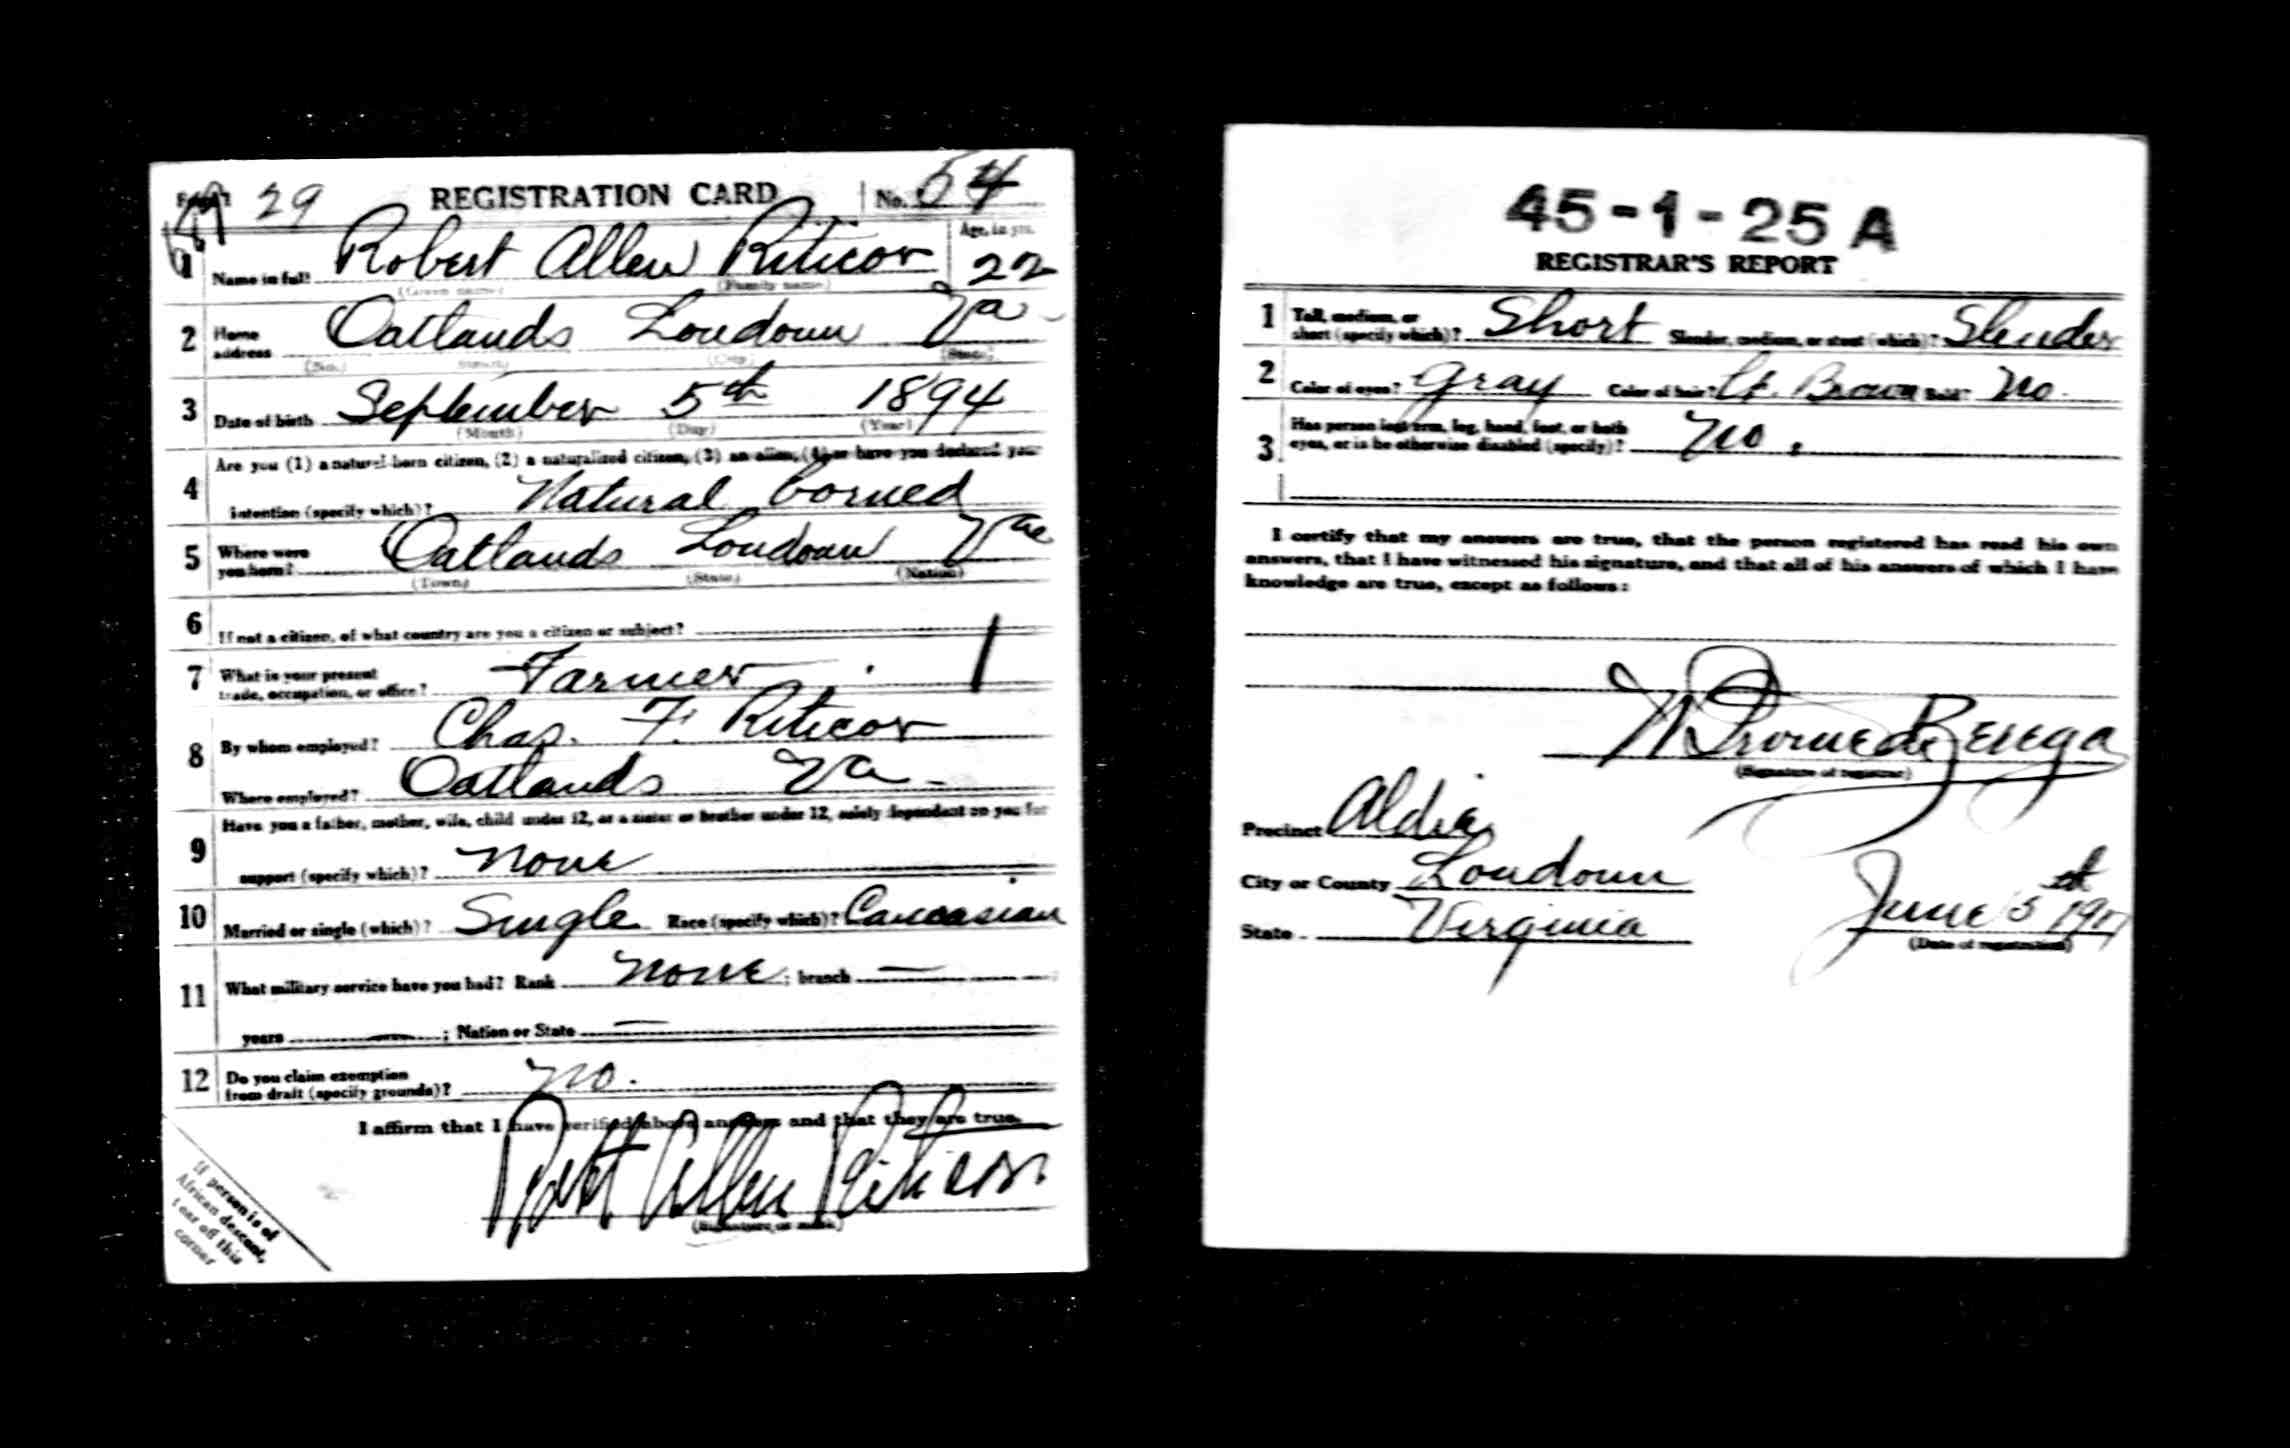 29 REGISTRATION CARD No. 54
1 Name in full Robert Allen Riticor Age, in yrs. 22
(Given name) (Family name)
2 Home address Oatlands Loudoun Va
(No.) (Street) (City) (State)
3 Date of birth September 5th 1894
(Month) (Day) (Year)
Are you (1) a natural-born citizen, (2) a naturalized citizen, (3) an alien, (4) or have you declared your
4 intention (specify which)? Natural borned
5 Where were you born? Oatlands Loudoun Va
(Town) (State) (Nation)
6 If not a citizen, of what country are you a citizen or subject?
7 What is your present trade, occupation, or office? Farmer
8 By whom employed? Chas. F. Riticor
Where employed? Oatlands Va
Have you a father, mother, wife, child under 12, or a sister or brother under 12, solely dependent on you for
9 support (specify which)? None
10 Married or single (which)? Single Race (specify which)? Caucasian
11 What military service have you had? Rank None ; branch —
years ; Nation or State —
12 Do you claim exemption from draft (specify grounds)? No.
I affirm that I have verified above answers and that they are true.
Robt Allen Riticor
(Signature or mark)
If person is of
African descent,
tear off this
corner
45-1-25 A
REGISTRAR'S REPORT
1 Tall, medium, or short (specify which)? Short Slender, medium, or stout (which)? Slender
2 Color of eyes? Gray Color of hair? Lt. Brown Bald? No.
3 Has person lost arm, leg, hand, foot, or both eyes, or is he otherwise disabled (specify)? No.
I certify that my answers are true, that the person registered has read his own
answers, that I have witnessed his signature, and that all of his answers of which I have
knowledge are true, except as follows:
de Zerega
(Signature of registrar)
Precinct Aldie
City or County Loudoun
State Virginia June 5 1917
(Date of registration)